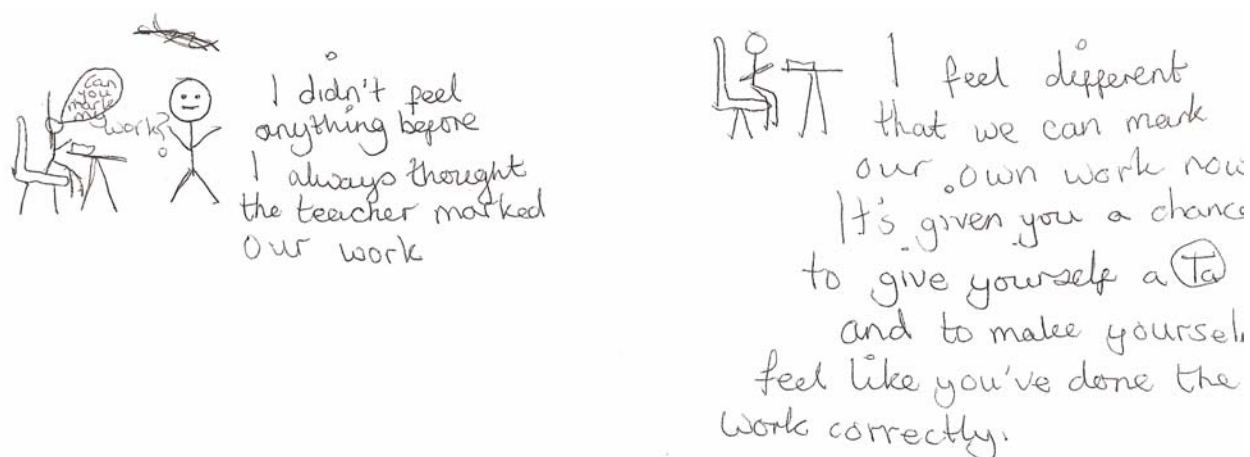 can
you
mark
my
work?
I didn't feel
anything before
I always thought
the teacher marked
our work
I feel different
that we can mark
our own work now
It's given you a chance
to give yourself a Ta
and to make yourself
feel like you've done the
work correctly.